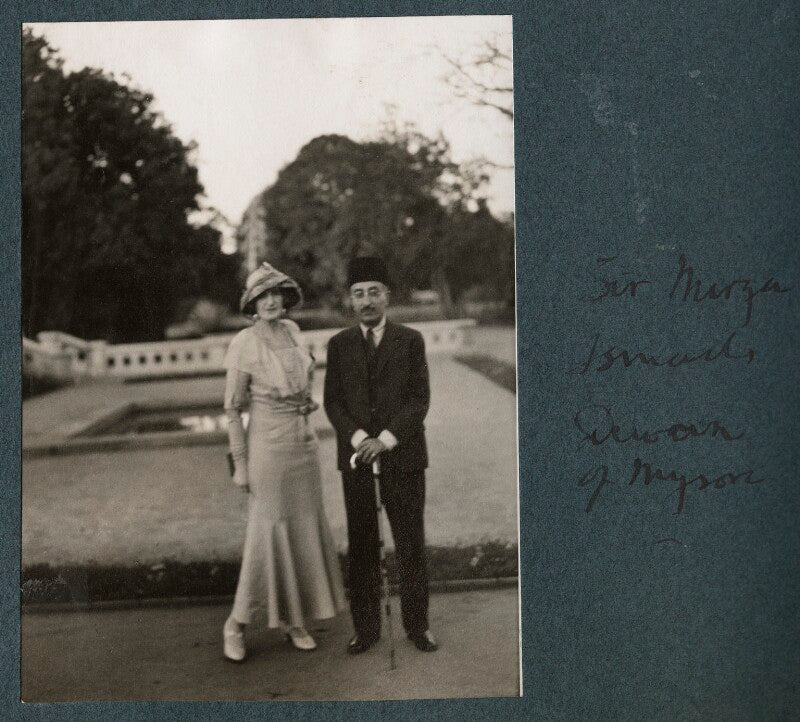 Sir Mirza
Ismail,
Dewan
of Mysore